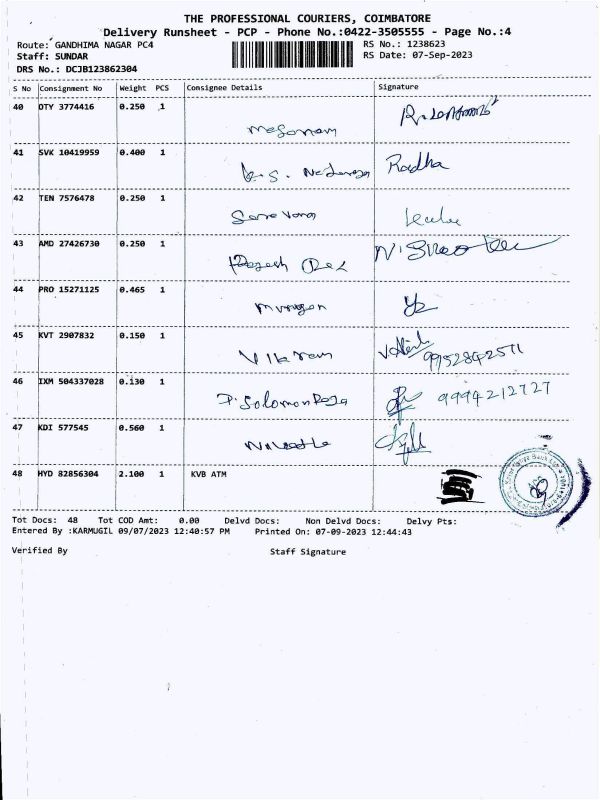 THE PROFESSIONAL COURIERS, COIMBATORE
Delivery Runsheet - PCP - Phone No.:0422-3505555 - Page No.:4
Route: GANDHIMA NAGAR PC4 RS No.: 1238623
Staff: SUNDAR RS Date: 07-Sep-2023
DRS No.: DCJB123862304
S No Consignment No Weight PCS Consignee Details Signature
40 OTY 3774416 0.250 1
41 SVK 10419959 0.400 1 Radha
42 TEN 7576478 0.250 1
43 AMD 27426730 0.250 1
44 PRO 15271125 0.465 1 murugan
45 KVT 2907832 0.150 1 Vikram 9952842571
46 IXM 504337028 0.130 1 P. Solomon Raja 9994212727
47 KDI 577545 0.560 1
48 HYD 82856304 2.100 1 KVB ATM
Tot Docs: 48 Tot COD Amt: 0.00 Delvd Docs: Non Delvd Docs: Delvy Pts:
Entered By :KARMUGIL 09/07/2023 12:40:57 PM Printed On: 07-09-2023 12:44:43
Verified By Staff Signature